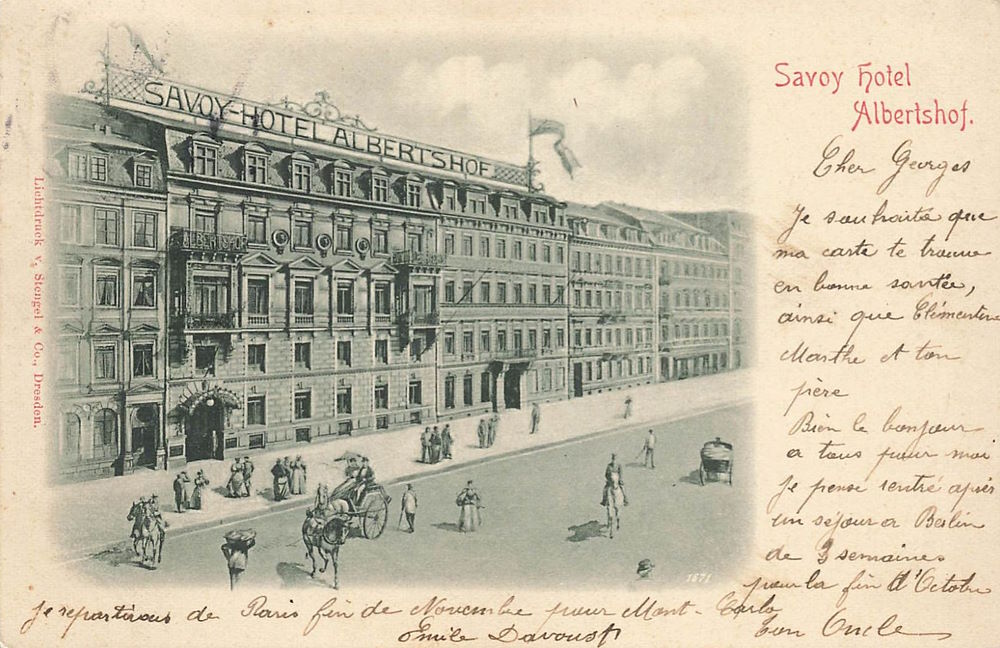 SAVOY-HOTEL ALBERTSHOF
ALBERTSHOF
Savoy Hotel
Albertshof.
Lichtdruck v. Stengel & Co., Dresden.
1671
Cher Georges
Je souhaite que
ma carte te trouve
en bonne santée,
ainsi que Clémentine
Marthe et ton
père
Bien le bonjour
a tous pour moi
Je pense rentré après
un séjour a Berlin
de 3 semaines
pour la fin d'Octobre
Je repartirais de Paris fin de Novembre pour Mont-Carlo
Emile Davoust
Ton Oncle